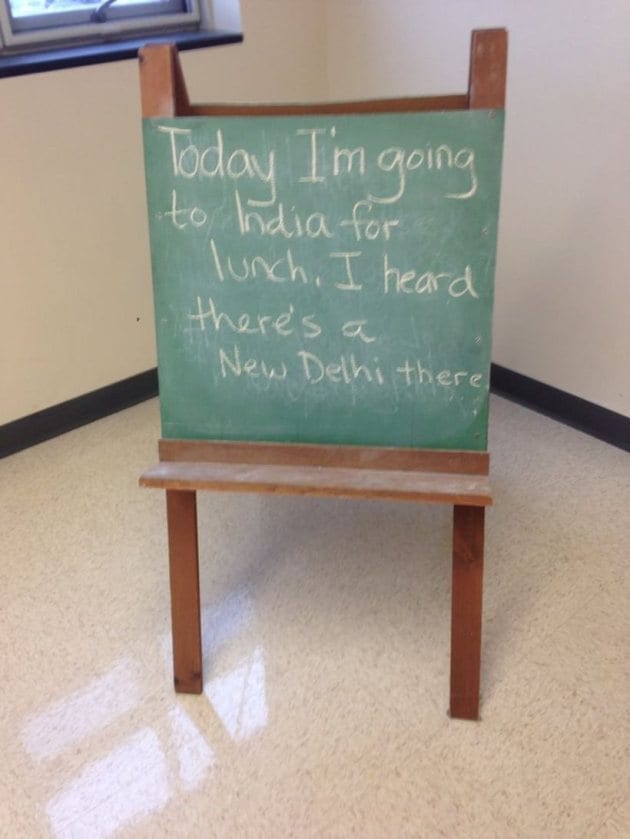 Today I'm going
to India for
lunch. I heard
there's a
New Delhi there